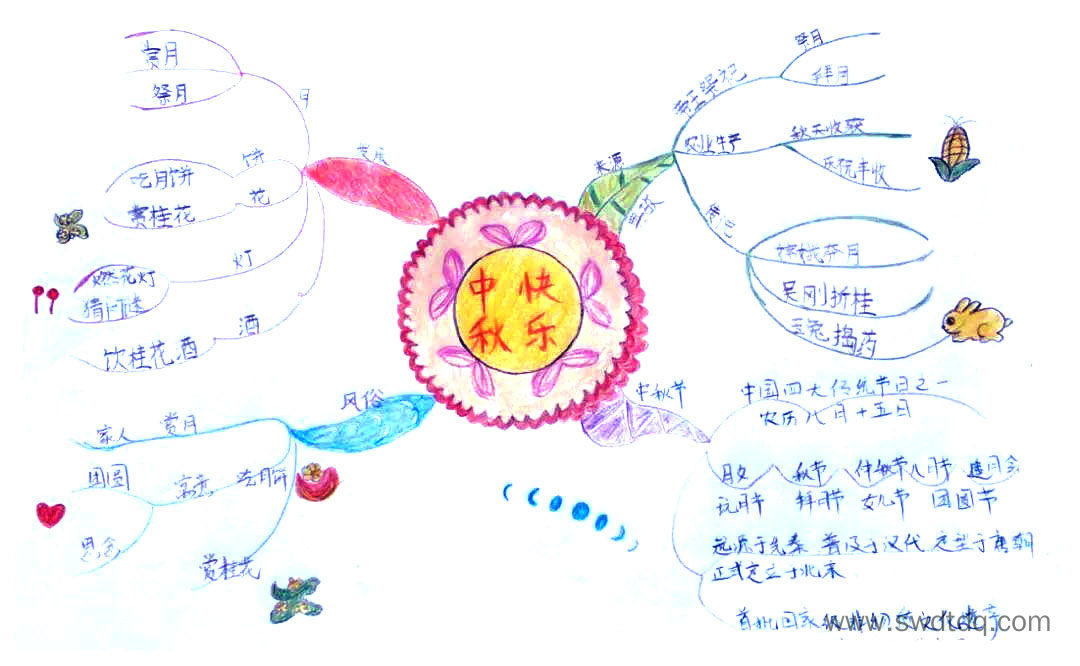 中 快
秋 乐
来源
帝王祭祀
祭月
拜月
农业生产
秋天收获
庆祝丰收
传说
嫦娥奔月
吴刚折桂
玉兔捣药
中秋节
中国四大传统节日之一
农历八月十五日
月夕 秋节 仲秋节 八月节 追月会
玩月节 拜月节 女儿节 团圆节
起源于先秦 普及于汉代 定型于唐朝
正式定立于北宋
首批国家级非物
风俗
家人 赏月
吃月饼
团圆
思念
赏桂花
发展
月
赏月
祭月
饼
吃月饼
花
赏桂花
灯
燃花灯
猜灯谜
酒
饮桂花酒
www.swdtdq.com